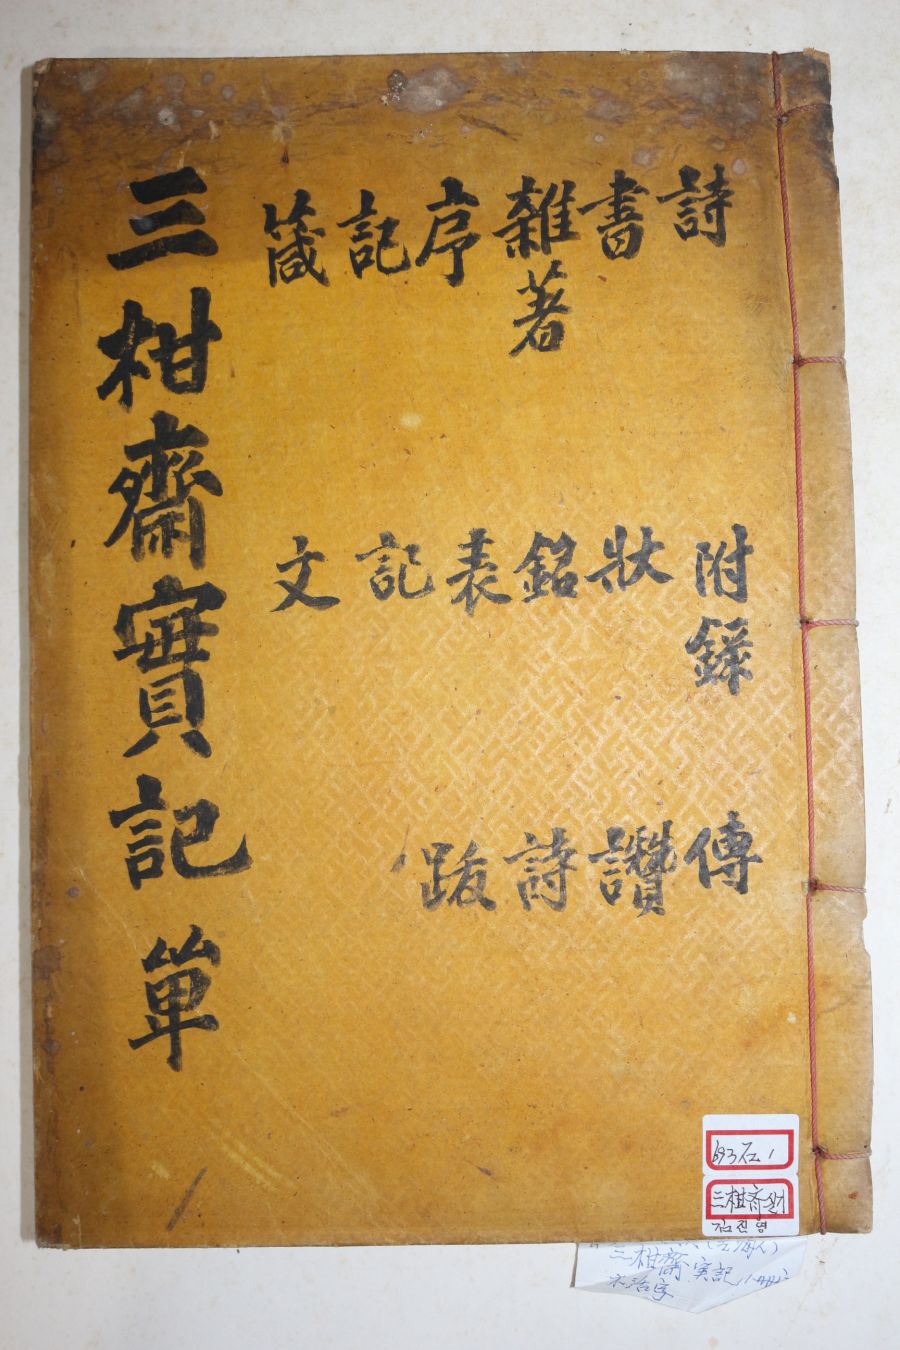 詩
書
雜著
序
記
箴
附錄
狀
銘
表
記
文
傳
讚
詩
跋
三柑齋實記 單
693 石 1
三柑斉실기
김진영
三柑齋実記 1冊
木活字